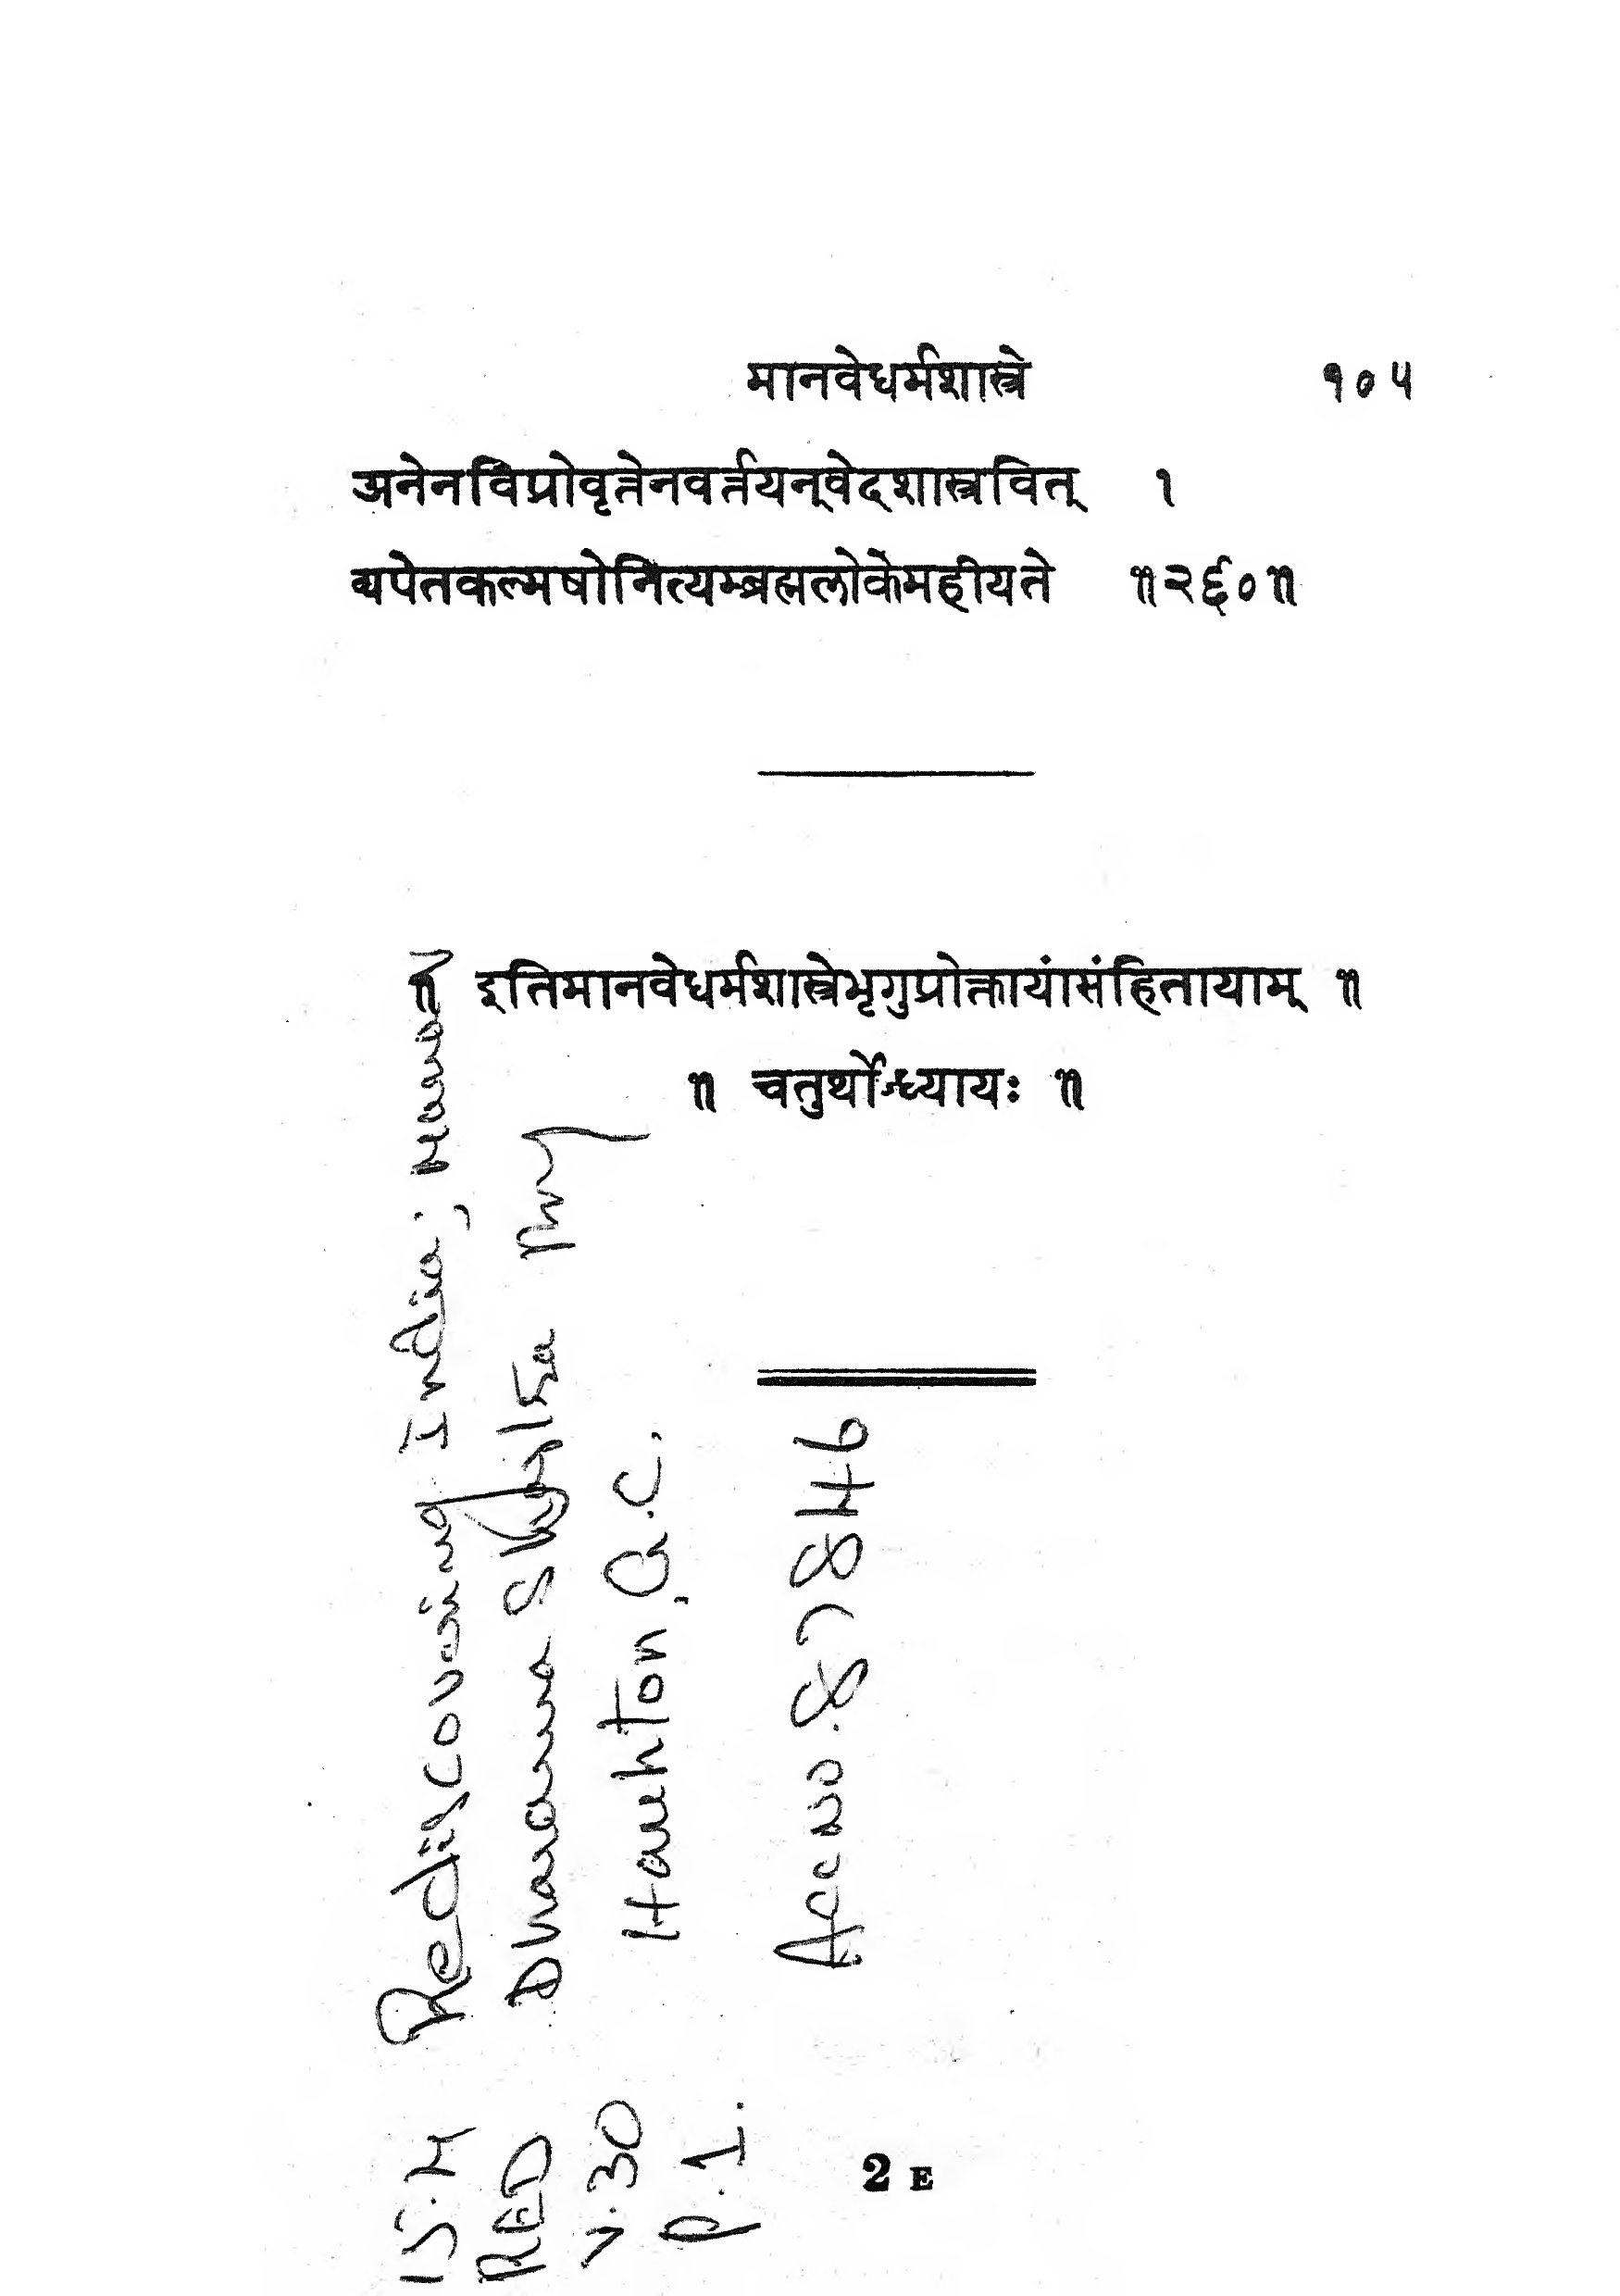 मानवेधर्मशास्त्रे १०५
अनेनविप्रोवृत्तेनवर्तयन्वेदशास्त्रवित् ।
व्यपेतकल्मषोनित्यम्ब्रह्मलोकेमहीयते ॥२६०॥
॥ इतिमानवेधर्मशास्त्रेभृगुप्रोक्तायांसंहितायाम् ॥
॥ चतुर्थोऽध्यायः ॥
Rediscovering India; Manav
Dharama Shyastra
Hauhton, G.C.
Accno. 87846
15.H
RED
V.30
P.1.
2 E